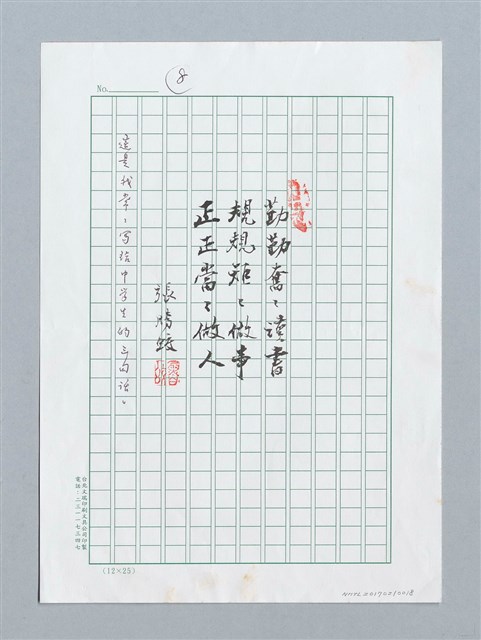 No.
8
勤勤奮〻讀書
規規矩〻做事
正正當〻做人
張騰蛟
這是我常〻寫給中學生的三句話。
台北文瑞印刷文具公司印製
電話：二三一一七三四七
(12×25)